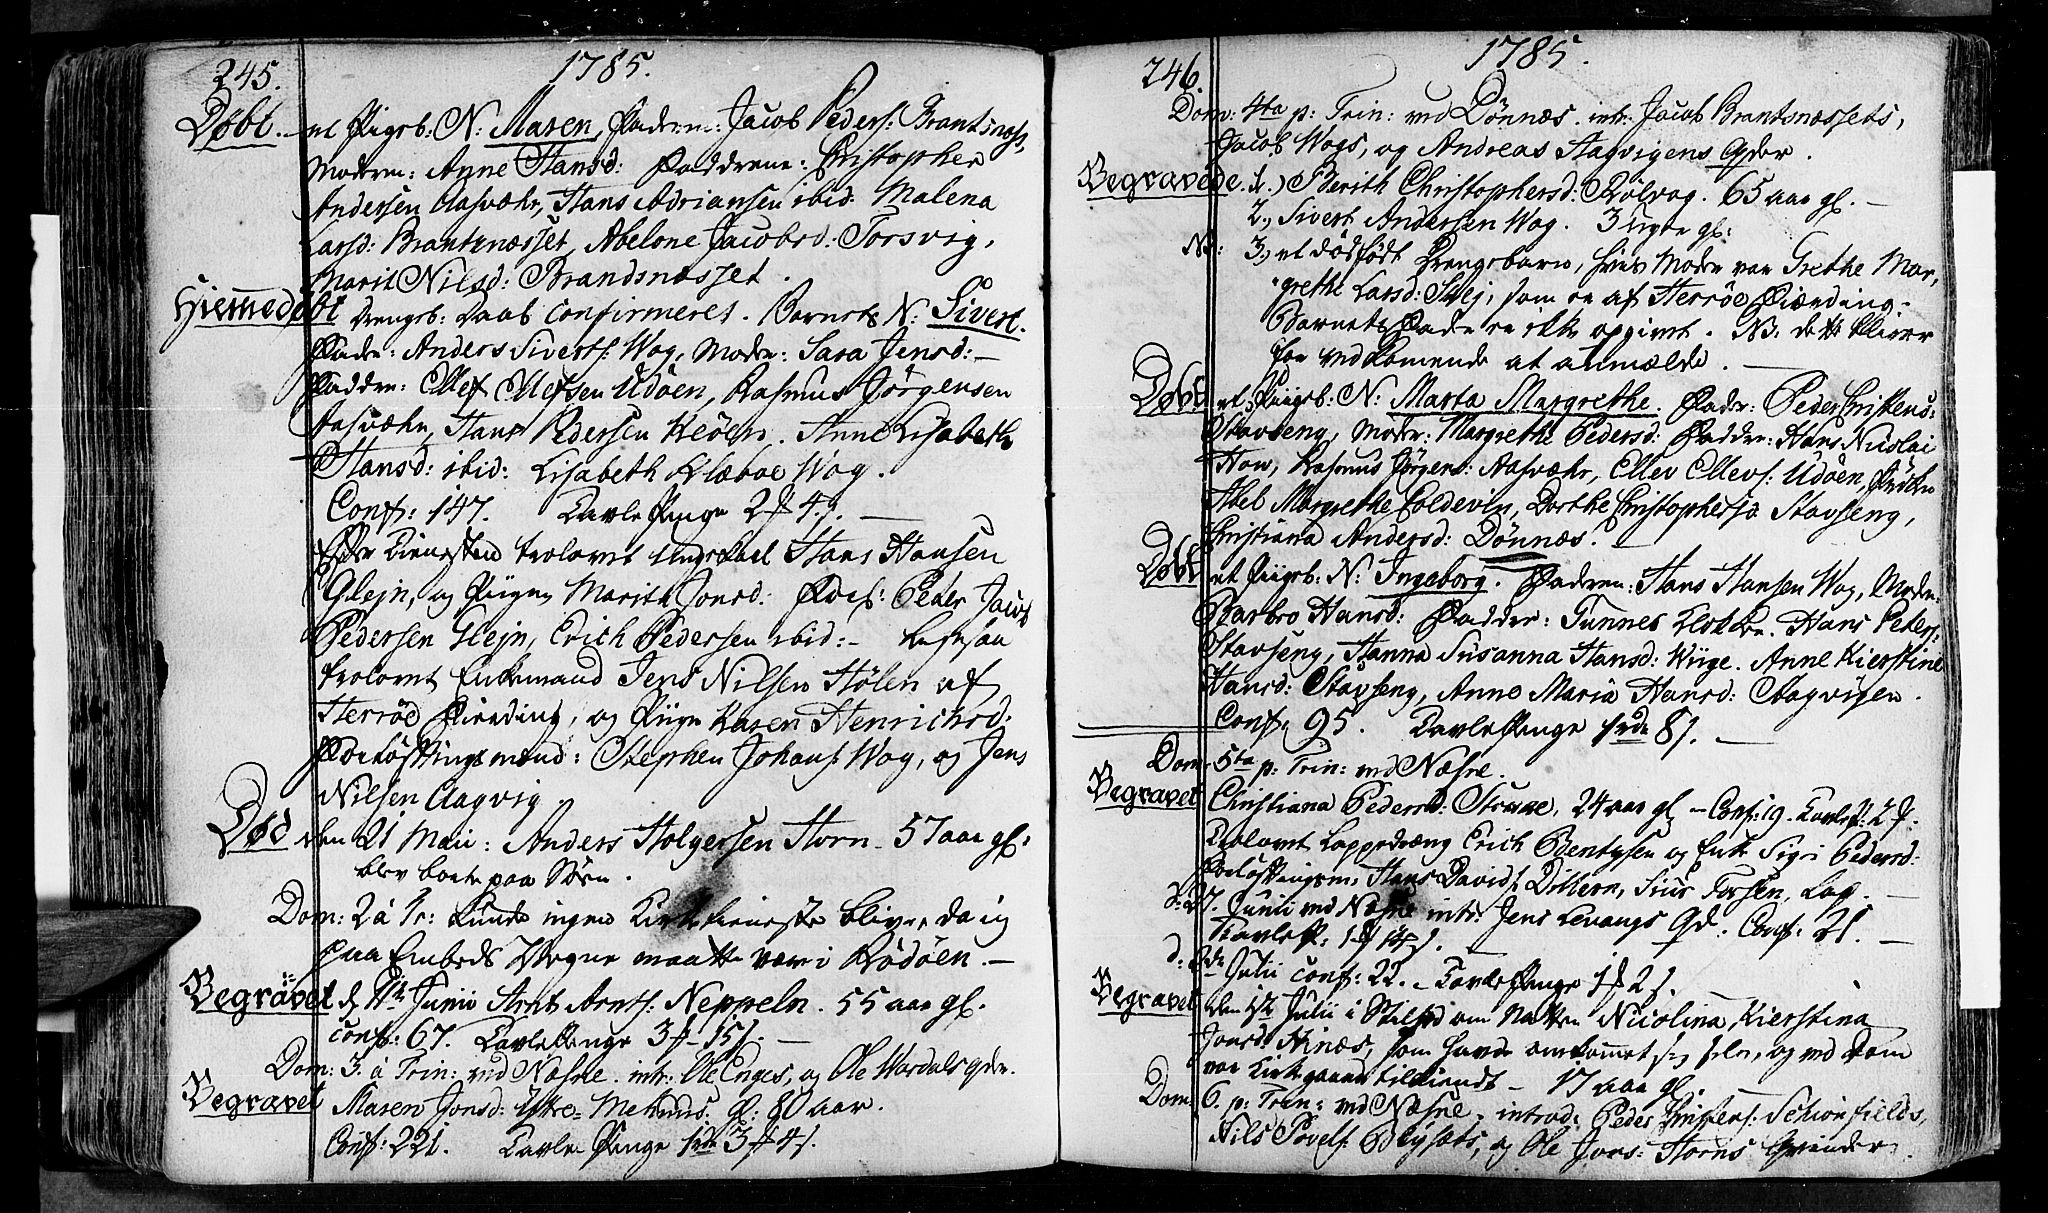 245. 1785.
Døbt. et Pigeb: N: Maren, Faderen: Jacob Peders: Brantsnæss,
Moderen: Anne Hansd: Faddrene: Christopher
Andersen Aasværn, Hans Adriansen ibid: Malena
Larsd: Brantsnæsset, Abelone Jacobsd: Torsvig,
Marit Nilsd: Brandsnæsset.
Hiemedøbt Drengeb: Daab confirmeret. Barnets N: Sivert.
Fader: Anders Siverts: Wog, Moder: Sara Jensd:
Faddre: Ellef Ellefsen Udøen, Rasmus Jørgensen
Aasværn, Hans Pedersen Heöen. Anne Lisabeth
Hansd: ibid: Lisabeth Klæboe Wog.
Conf: 147. Tavle Penge 2 # 4 s.
Før Tienesten trolovet Ungekarl Hans Hansen
Glejn, og Pigen Marith Jonsd: Peder Jacob
Pedersen Glejn, Erich Pedersen ibid: ligesaa
trolovet Enkemand Jens Nilsen Hølen af
Herrøe Fierding, og Pige Karen Henrichsd:
Forløftningsmænd: Stephen Johans: Wog, og Jens
Nilsen Aagvig
Død den 21 Maii: Anders Holgersen Horn. 57 aar gl:
blev borte paa Søen.
Dom: 2 à Tr: kunde ingen Kirketieneste blive, da jeg
paa Embeds Vegne maatte være i Rødøen.
Begravet d 11te Junii Arnt Arnts: Neppeln. 55 aar gl.
conf: 67. Tavle Penge 3 # 15 s.
Dom: 3 à Trin: ved Næsne. intr: Ole Enges, og Ole Wardals Qder.
Begravet Maren Jonsd: Mehuus. gl: 80 aar.
Conf: 221. Tavle Penge 3 # 4 s.
246. 1785.
Dom: 4ta p: Trin: ved Dønnæs. intr: Jacob Brantsnæssets,
Jacob Wogs, og Andreas Hagvigens Qder.
Begravede. 1.) Berith Christophersd: Rølvog. 65 aar gl.
2., Sivert Andersen Wog. 3 Uger gl:
No: 3., et dødfødt Drengebarn, hvis Moder var Grethe Mar,
grethe Larsd: som er af Herrøe Fierding.
Barnets Fader er ikke opgivet. NB: dette bliver
for vedkomende at anmælde.
Døbt et Piigeb: N: Marta Margrethe. Fader: Peder Christens:
Stavseng, Moder: Margrethe Pedersd: Faddre: Hans Nicolai
How, Rasmus Jørgens: Aasværn, Ellev Ellevs: Udøen,
Abel Margrethe Coldevin, Dorthe Christophersd: Stavseng,
Christiana Andersd: Dønnæs.
Døbt et Piigeb: N: Ingeborg. Faderen: Hans Hansen Wog, Moder:
Barbro Hansd: Faddere: Tunnes Hans Peders:
Stavseng, Hanna Susanna Hansd: Wiige. Anne Kierstine
Hansd: Stavseng, Anne Maria Hansd: Hagvigen.
Conf: 95. Tavle Penge 1rdr 8 s.
Dom 5ta p: Trin: ved Næsne.
Begravet Christiana Pedersd: 24 aar gl Conf: 19. Tavle P: 2 s.
Trolovet Lappedræng Erich Bentzsen og Enke Sigri Pedersd:
Forløftningsm: Hans Davids: Dollern, Sius Torsen, Lap
d: 27 Junii ved Næsne intr: Jens Levangs Qd: Conf: 21.
d: 3de Julii conf: 22. Tavle Penge 1 # 2 s.
Begravet den 1te Julii i Stilhed om Natten Nicolina Kierstina
Jonsd: Hinæs, som havde omkommet sig selv, og ved Dom
var Kirkegaard tilkiendt 17 aar gl.
Dom 6. p: Trin: ved Næsne. introd: Peder Christens: Schionfields,
Nils Povels: og Ole Jons: Horns Qvinder.